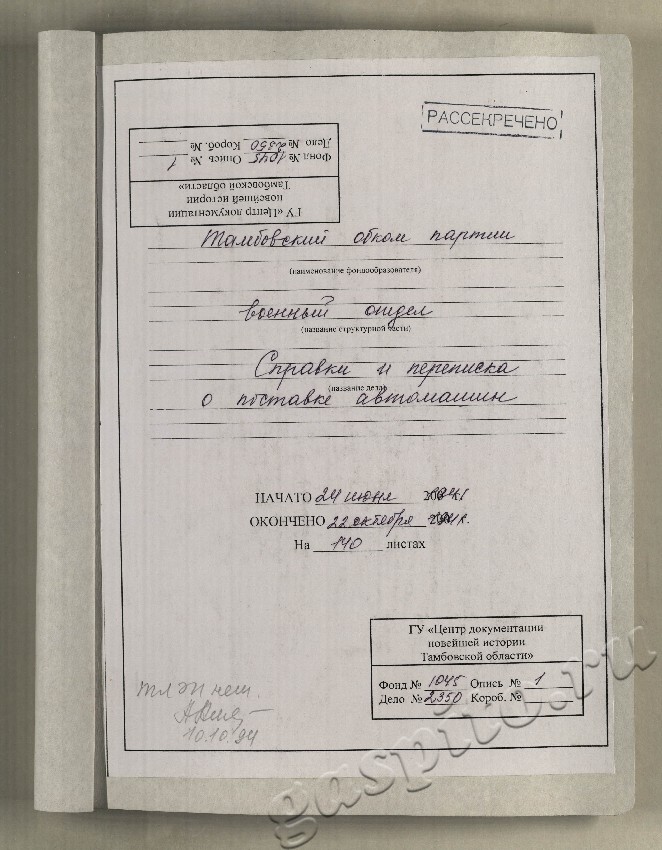 РАССЕКРЕЧЕНО
ГУ «Центр документации
новейшей истории
Тамбовской области»
Фонд № 1045 Опись № 1
Дело № 2350 Короб. №
Тамбовский обком партии
(наименование фондообразователя)
военный отдел
(название структурной части)
Справки и переписка
(название дела)
о поставке автомашин
НАЧАТО 24 июня 1941
ОКОНЧЕНО 22 октября 1941г.
На 140 листах
ГУ «Центр документации
новейшей истории
Тамбовской области»
Фонд № 1045 Опись № 1
Дело № 2350 Короб. №
нет.
10.10.94
gaspito.ru